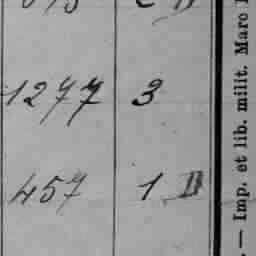 1277 3
457 1 D
— Imp. et lib. milit. Marc